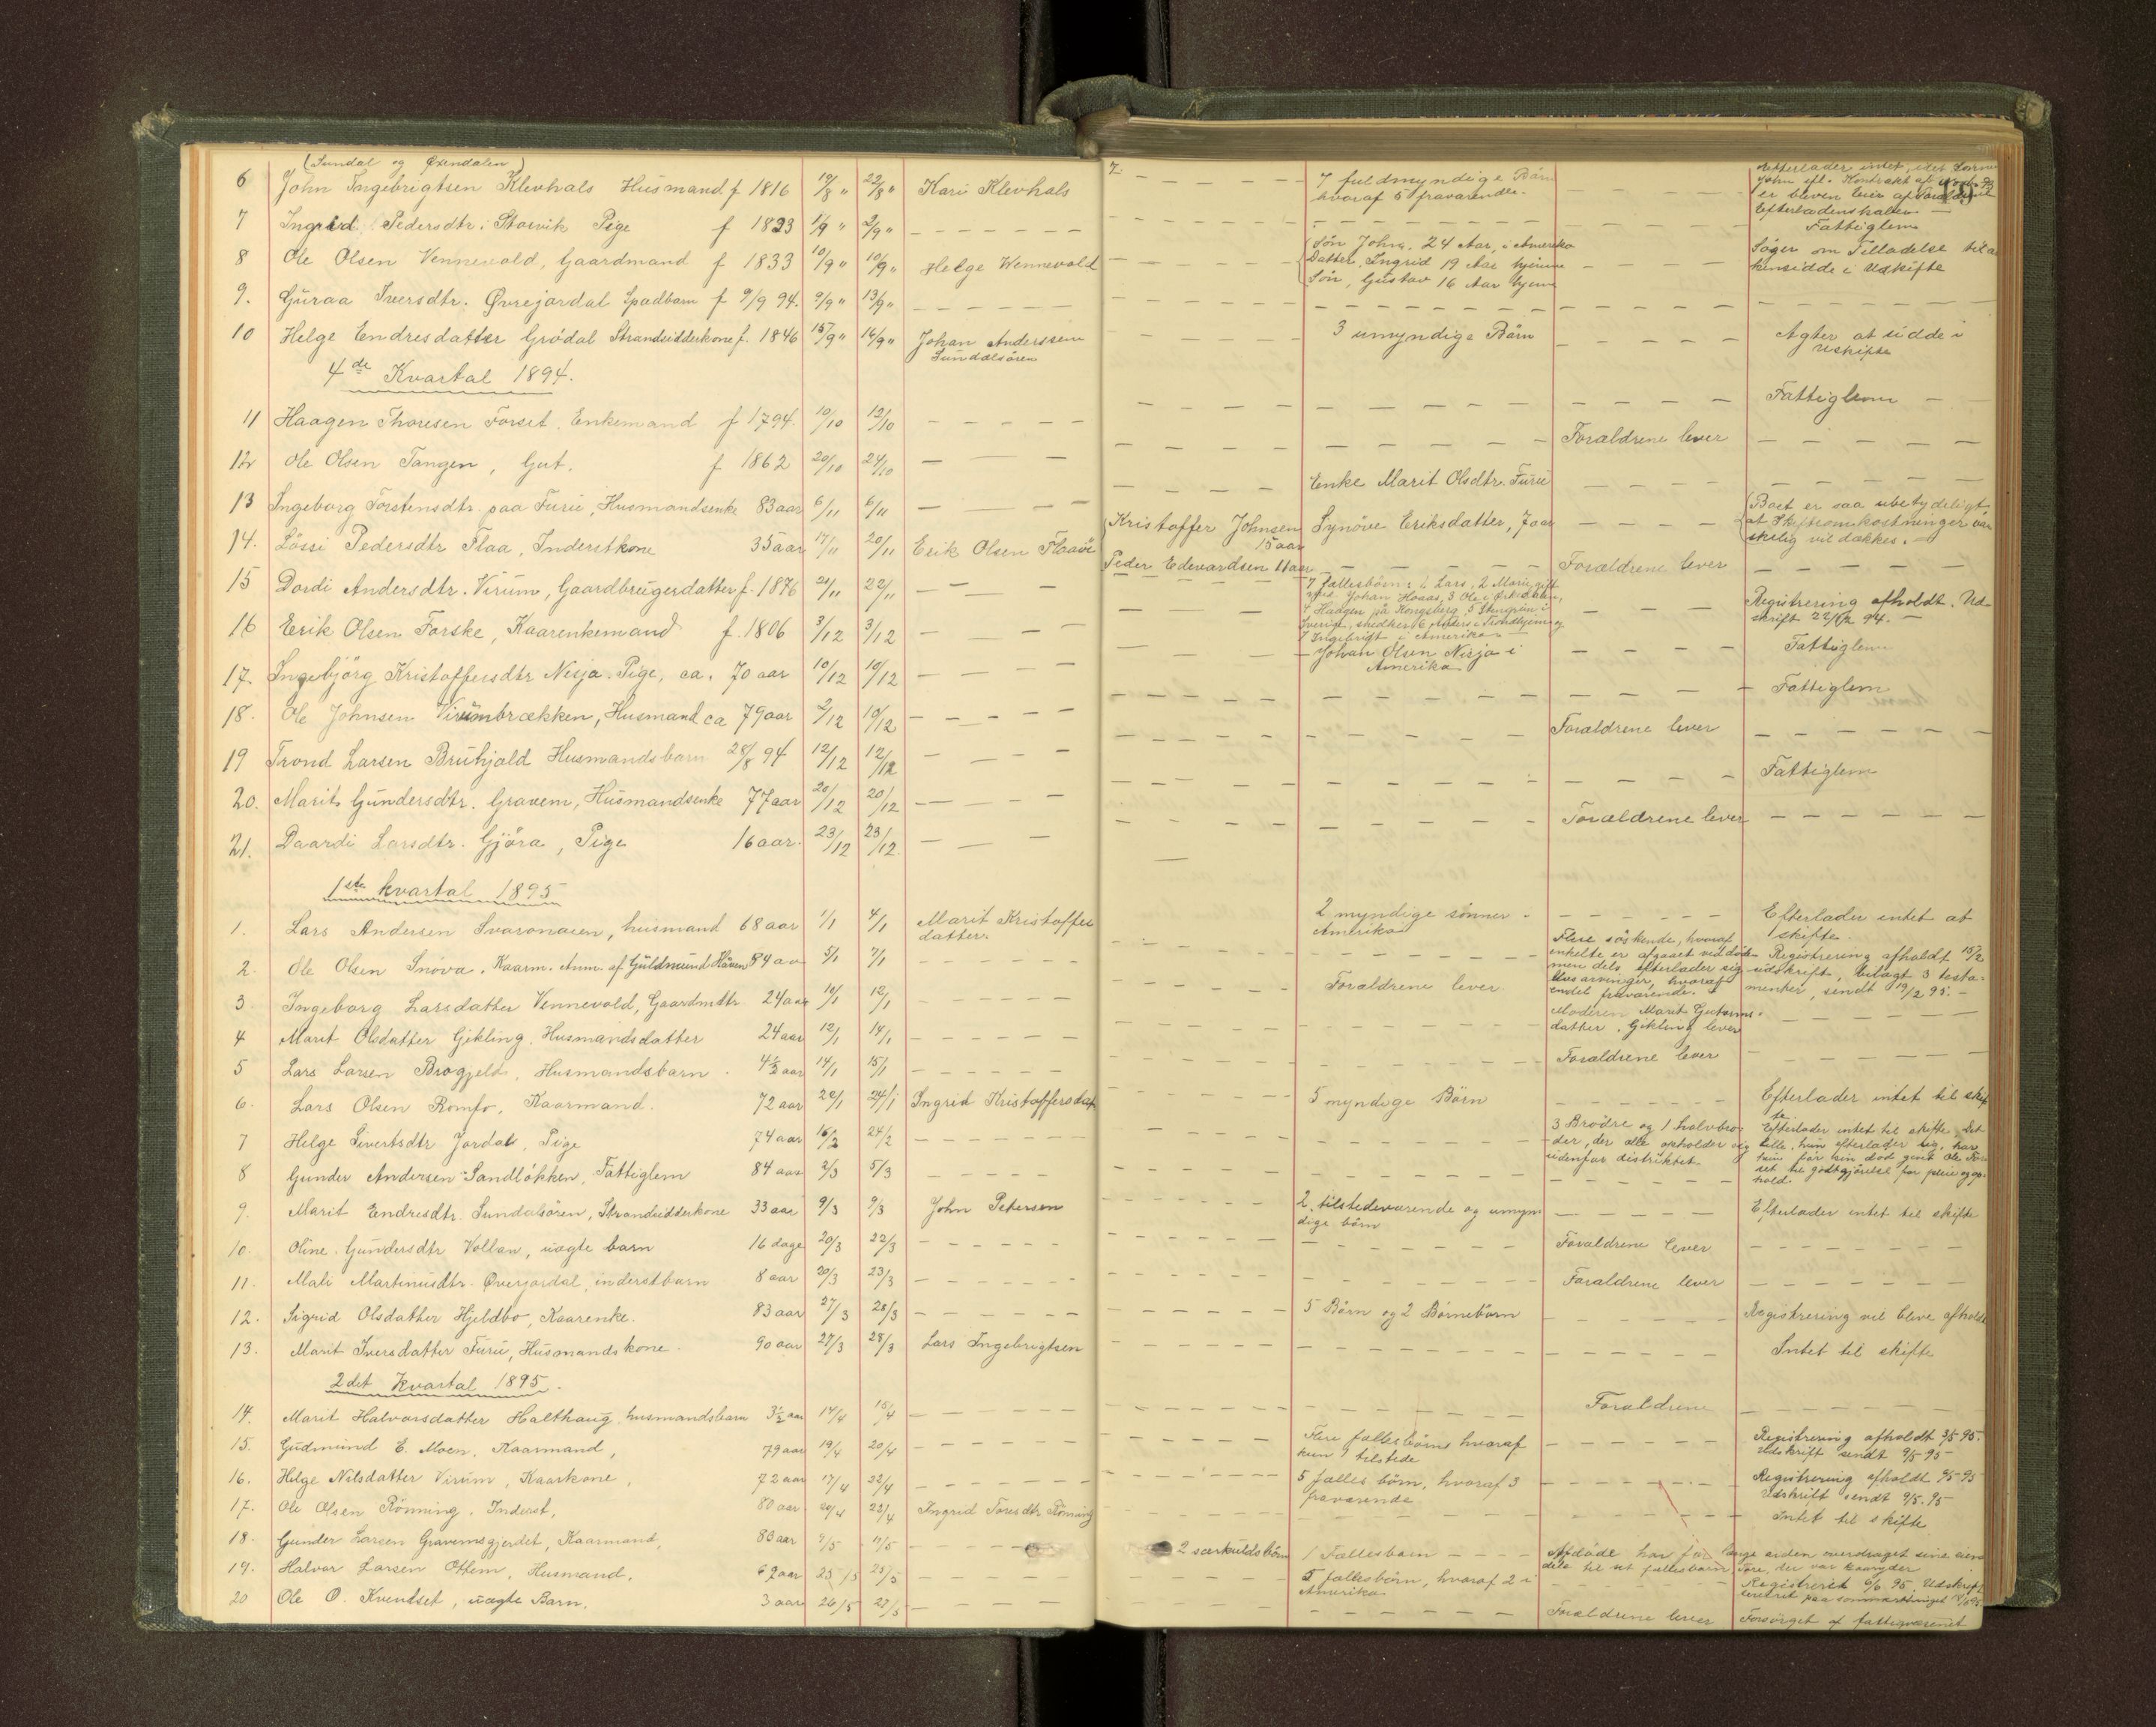 (Sundal og Øxendalen)
6 John Ingebrigtsen Klevhals Husmand f 1816 19/8 " 22/8 " Kari Klevhals
7 Ingrid Pedersdtr. Storvik Pige f 1823 1/9 " 2/9 "
8 Ole Olsen Vennevold, Gaardmand f 1833 10/9 " 10/9 " Helge Wennevold
9. Guraa Iversdtr. Øvrejordal Spædbarn f 9/9 94. 9/9 " 13/9 "
10 Helge Endresdatter Grødal Strandsidderkone f. 1846 15/9 " 16/9 " Johan Anderssen
Sundalsören
4de Kvartal 1894.
11 Haagen Thoresen Forset. Enkemand f 1794. 10/10 12/10
12 Ole Olsen Tangen, Gut. f 1862 20/10 24/10
13 Ingeborg Torstensdtr. paa Furu, Husmandsenke 83 aar 6/11 6/11
14. Lössi Pedersdtr Flaa, Inderstkone 35 aar 17/11 20/11 Erik Olsen Flaaö
15 Dordi Andersdtr. Virum, Gaardbrugerdatter f. 1876 21/11 22/11
16 Erik Olsen Forske, Kaarenkemand f. 1806 3/12 3/12
17. Ingebjörg Kristoffersdtr Nisja. Pige, ca. 70 aar 10/12 10/12
18. Ole Johnsen Virumbrækken, Husmand ca 79 aar 2/12 10/12
19 Trond Larsen Bruhjald Husmandsbarn 28/8 94 12/12 12/12
20. Marit Gundersdtr. Gravem, Husmandsenke 77 aar 20/12 20/12
21. Daardi Larsdtr. Gjöra, Pige 16 aar. 23/12 23/12.
1ste kvartal 1895
1. Lars Andersen Svaronaien, husmand 68 aar 1/1 4/1 Marit Kristoffer
datter.
2. Ole Olsen Snöva. Kaarm. Anm. af Guldmund Håven 84 aar 5/1 7/1
3 Ingeborg Larsdatter Vennevold, Gaardmdtr 24 aar 10/1 12/1
4 Marit Olsdatter Gikling. Husmandsdatter 24 aar 12/1 14/1
5 Lars Larsen Brogjeld, Husmandsbarn. 4½ aar 14/1 15/1
6. Lars Olsen Romfo, Kaarmand. 72 aar 22/1 24/1 Ingrid Kristoffersdat
7 Helge Sivertsdtr Jordal, Pige 74 aar 16/2 24/2
8 Gunder Andersen Sandløkken, Fattiglem 84 aar 2/3 5/3
9. Marit Endresdtr. Sundalsören, Strandsidderkone 33 aar 9/3 9/3 John Petersen
10. Oline Gundersdtr Vollan, uægte barn 16 dage 20/3 22/3
11. Mali Martinusdtr. Øverjordal, inderstbarn 8 aar 20/3 23/3
12. Sigrid Olsdatter Hjeldbo, Kaarenke. 83 aar 27/3 28/3
13. Marit Iversdatter Furu, Husmandskone. 90 aar 27/3 28/3 Lars Ingebrigtsen
2det Kvartal 1895.
14. Marit Halvorsdatter Halthaug husmandsbarn 3½ aar 14/4 15/4
15. Gudmund E. Moen. Kaarmand, 79 aar 19/4 20/4
16. Helge Nilsdatter Virum, Kaarkone, 72 aar 17/4 22/4
17. Ole Olsen Rönning. Inderst, 80 aar 20/4 23/4 Ingrid Toresdtr Rönning
18. Gunder Larsen Gravemsgjerdet, Kaarmand, 83 aar 9/5 11/5
19. Halvor Larsen Ottem, Husmand, 67 aar 23/5 25/5
20 Ole O. Kvendset, uægte Barn. 3 aar 26/5 27/5
7 fuldmyndige Börn
hvoraf 5 fraværende.
Efterlader intet, idet Sönnen
John
er bleven Eier af
Efterladenskaber
Fattiglem
Sön John. 24 Aar, i Amerika
Datter, Ingrid 19 Aar hjemme
Sön, Gustav 16 Aar hjem
Söger om Tilladelse til a
hensidde i Uskifte
3 umyndige Börn
Agter at sidde i
Uskifte
Fattiglem
Forældrene lever
Enke Marit Olsdtr. Furu
Kristoffer Johnsen
15 aar
Peder Edevardsen 11 aar
Synöve Eriksdatter, 7 aar
Boet er saa ubetydeligt
at Skifteomkostninger van
skelig vil dækkes.
Forældrene lever
7 fællesbörn: 1 Lars, 2 Marit gift
med Johan Hoaas, 3 Ole i Ørkedalen,
4 Haagen på Kongsberg 5 i
Sverige, snedker 6 Anders i Trondhjem og
7 Ingebrigt i Amerika
Registrering afholdt. Ud-
skrift 22/12 94.
Johan Olsen Nisja i
Amerika
Fattiglem
Fattiglem
Forældrene lever
Fattiglem
Forældrene lever
2 myndige sönner
Amerika
Efterlader intet at
skifte.
Flere söskende, hvoraf
enkelte er afgaaet ved döden
men dels efterlader sig
livsarvinger, hvoraf
endel fraværende.
Registrering afholdt 15/2
udskrift, bilagt 3 testa-
menter, sendt 19/2 95.
Forældrene lever
Moderen Marit Gutorms-
datter. Gikling lever
Forældrene lever
5 myndige Börn
Efterlader intet til skif
te
3 Brödre og 1 halvbro-
der, der alle opholder sig
udenfor distriktet.
Efterlader intet til skifte. Det
lille, hun efterlader sig, har
hun för sin död givet Ole For
set til godtgjörelse for pleie og op-
hold.
2 tilstedeværende og umyn
dige börn
Efterlader intet til skifte
Forældrene lever
Forældrene lever
5 Börn og 2 Börnebörn
Registrering vil blive afholdt
Intet til skifte
Forældrene
Flere fællesbörn hvoraf
kun 1 tilstede
Registrering afholdt 3/5 95.
Udskrift sendt 9/5 95
5 fælles börn, hvoraf 3
fraværende
Registrering afholdt 4/5 95
Udskrift sendt 9/5. 95
Intet til skifte
2 særkuldsbörn 1 Fællesbarn
Afdöde har for længe siden overdraget sine eien
dele til sit fællesbarn Tore, der var kaaryder
5 fællesbörn, hvoraf 2 i
Amerika
Registreret 6/6 95. Udskrift
leveret paa sommerthinget
Forældrene lever Forsörget af fattigvæsenet